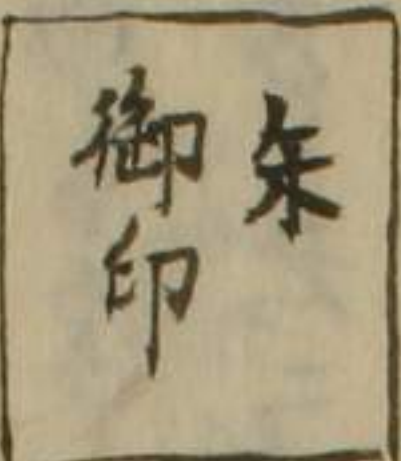 朱
御印